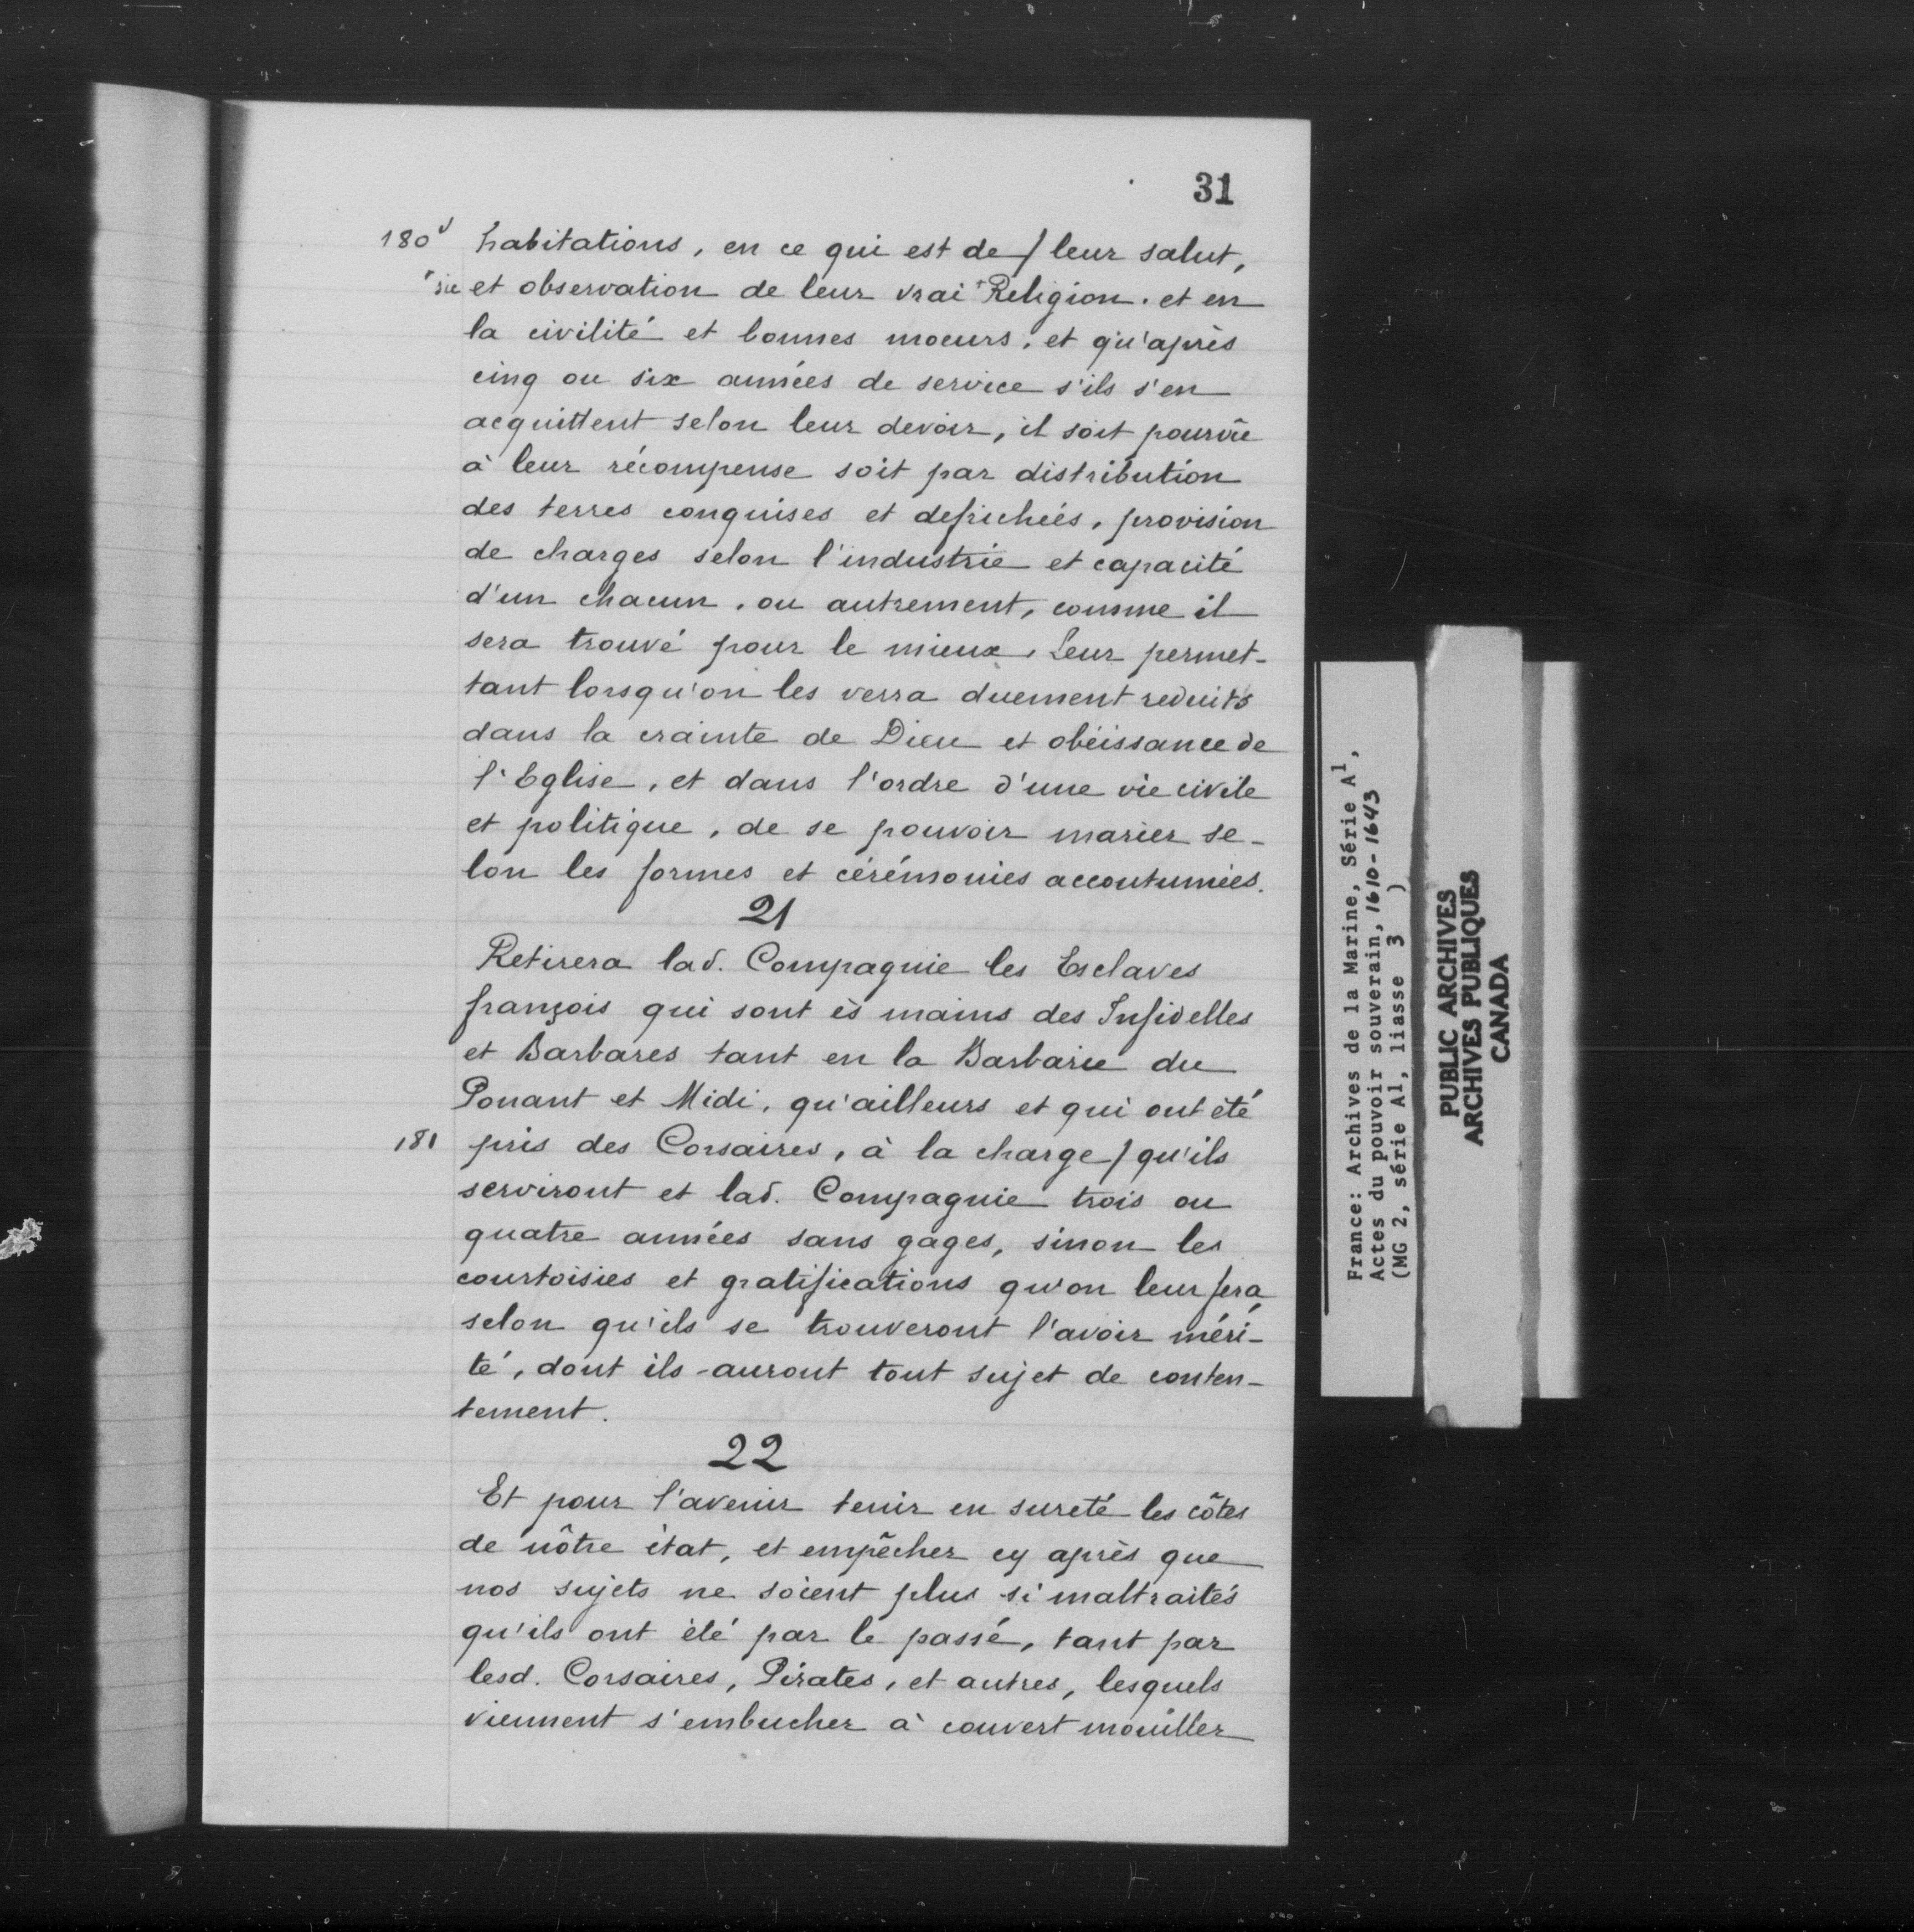 31
180v habitations, en ce qui est de / leur salut,
+sic et observation de leur vrai + Religion. et en
la civilité et bonnes moeurs, et qu'après
cinq ou six années de service s'ils s'en
acquittent selon leur devoir, il soit pourvû
à leur récompense soit par distribution
des terres conquises et defrichées, provision
de charges selon l'industrie et capacité
d'un chacun, ou autrement, comme il
sera trouvé pour le mieux, Leur permet-
tant lorsqu'on les verra duement reduits
dans la crainte de Dieu et obéissance de
l'Eglise, et dans l'ordre d'une vie civile
et politique, de se pouvoir marier se-
lon les formes et cérémonies accoutumées.
21
Retirera lad. Compagnie les Esclaves
françois qui sont ès mains des Infidelles
et Barbares tant en la Barbarie du
Ponant et Midi, qu'ailleurs et qui ont été
181 pris des Corsaires, à la charge / qu'ils
serviront et lad. Compagnie trois ou
quatre années sans gages, sinon les
courtoisies et gratifications qu'on leur fera
selon qu'ils se trouveront l'avoir méri-
té, dont ils auront tout sujet de conten-
tement.
22
Et pour l'avenir tenir en sureté les côtes
de nôtre état, et empêcher cy après que
nos sujets ne soient plus si maltraités
qu'ils ont été par le passé, tant par
lesd. Corsaires, Pirates, et autres, lesquels
viennent s'embucher à couvert mouiller
France: Archives de la Marine, Série A1,
Actes du pouvoir souverain, 1610-1643
(MG 2, série A1, liasse 3 )
PUBLIC ARCHIVES
ARCHIVES PUBLIQUES
CANADA